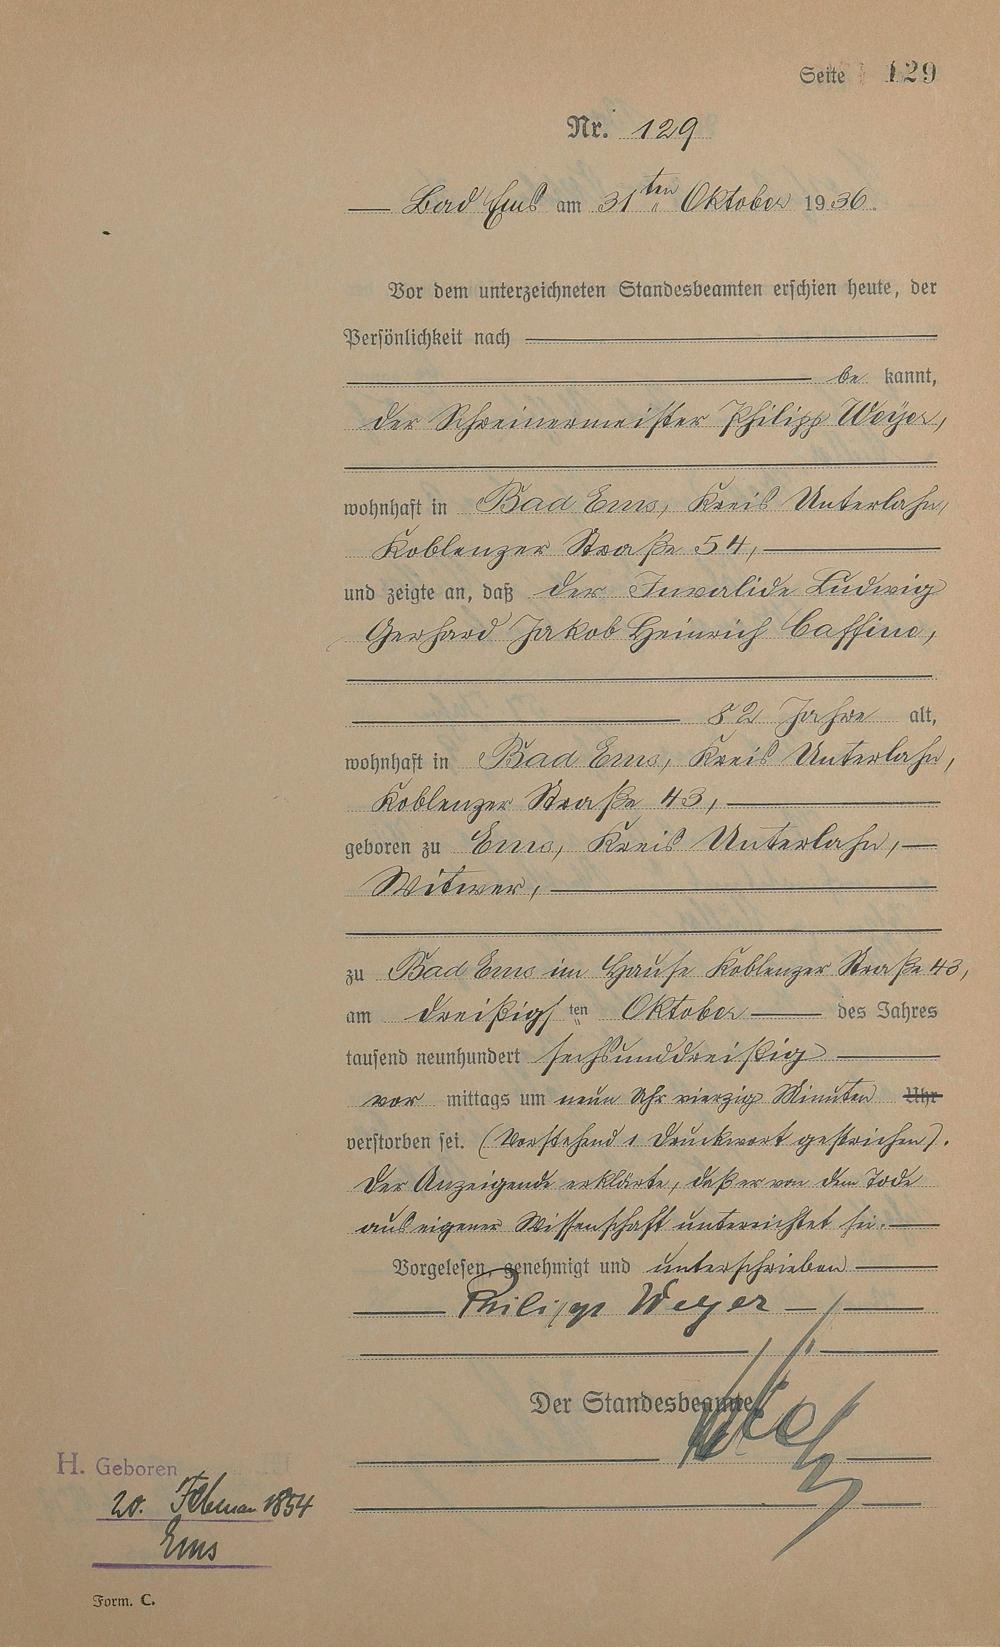 Seite 129
Nr. 129
Bad Ems am 31ten Oktober 1936.
Vor dem unterzeichneten Standesbeamten erschien heute, der
Persönlichkeit nach
be kannt,
der Schreinermeister Philipp Weyer,
wohnhaft in Bad Ems, Kreis Unterlahn,
Koblenzer Straße 54,
und zeigte an, daß der Invalide Ludwig
Gerhard Jakob Heinrich Caffine,
82 Jahre alt,
wohnhaft in Bad Ems, Kreis Unterlahn,
Koblenzer Straße 43,
geboren zu Ems, Kreis Unterlahn,
Witwer,
zu Bad Ems im Hause Koblenzer Straße 43,
am dreißigsten Oktober des Jahres
tausend neunhundert sechsunddreißig
vor mittags um neun Uhr vierzig Minuten Uhr
verstorben sei. (Vorstehend 1 Druckwort gestrichen).
Der Anzeigende erklärte, daß er von dem Tode
aus eigener Wissenschaft unterrichtet sei.
Vorgelesen, genehmigt und unterschrieben
Philipp Weyer
Der Standesbeamte
H. Geboren
20. Februar 1854
Ems
Form. C.